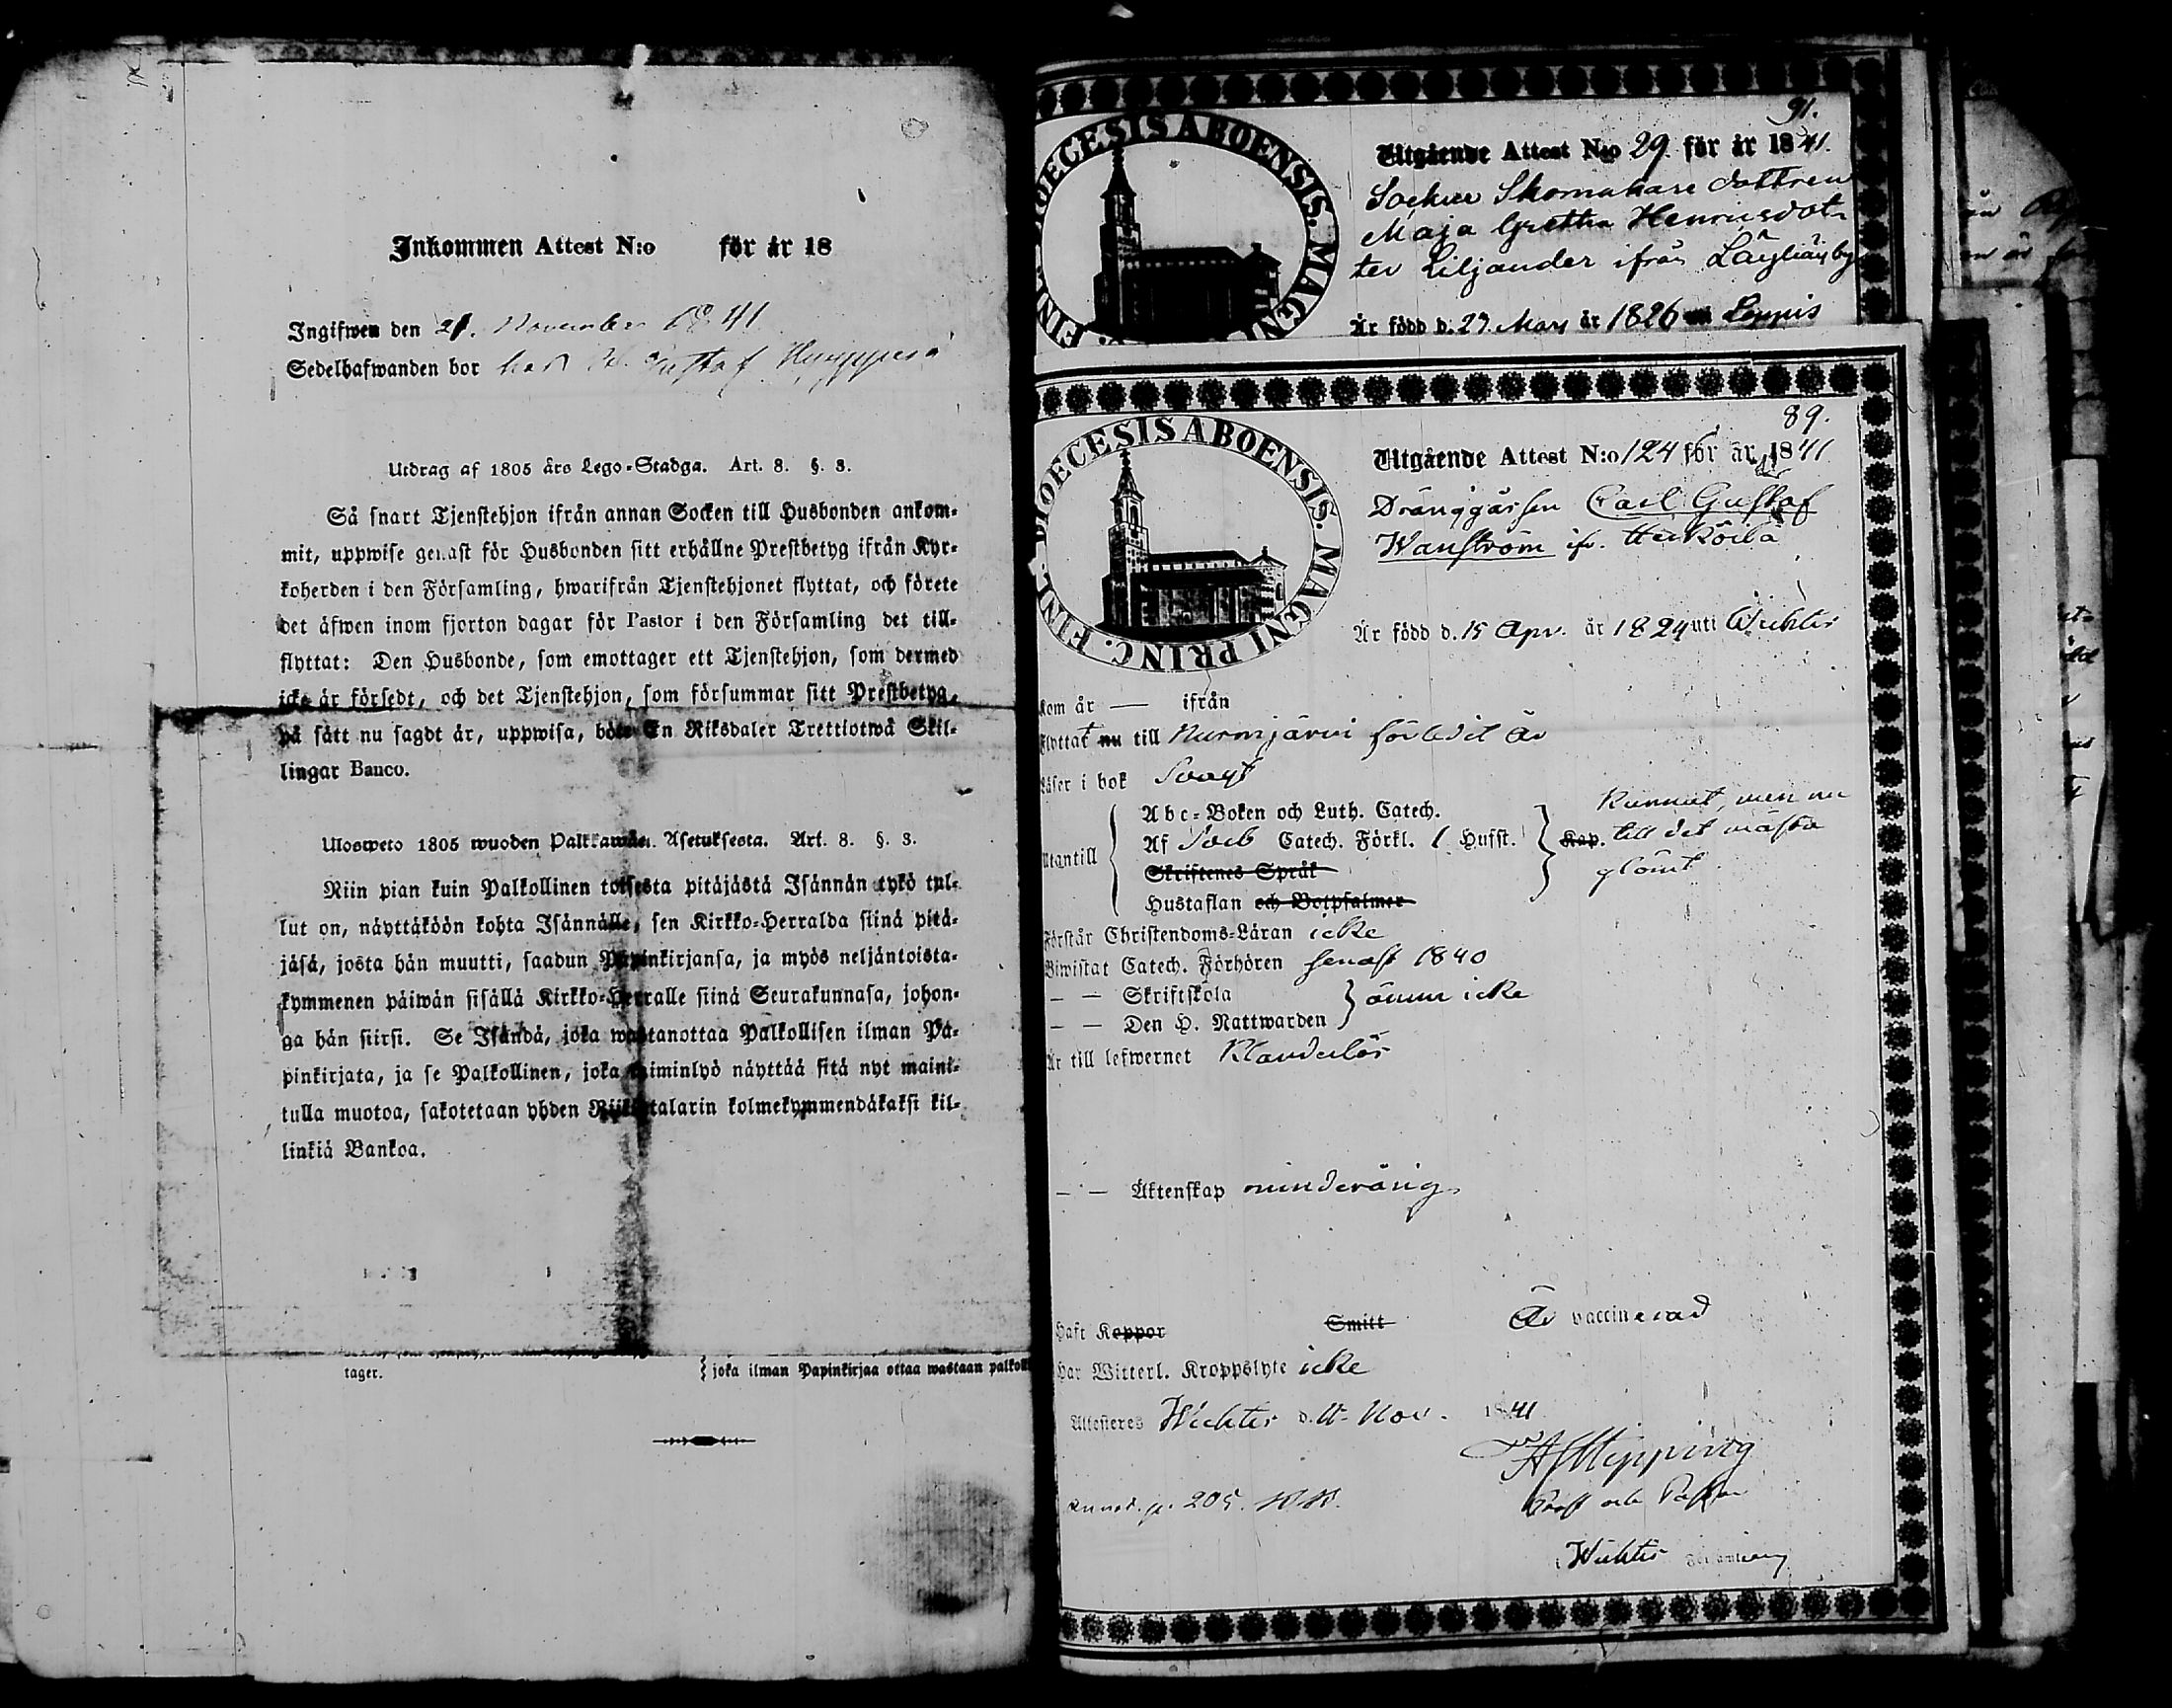 Inkommen Attest N:o för år 18
Ingifwen den 21. November 1841
Sedelhafwanden bor hos Gustaf
Utdrag af 1805 års Lego-Stadga. Art. 8. §. 3.
Så snart Tjenstehjon ifrån annan Socken till Husbonden ankom-
mit, uppwise genast för Husbonden sitt erhållne Prestbetyg ifrån Kyr-
koherden i den Församling, hwarifrån Tjenstehjonet flyttat, och förete
det äfwen inom fjorton dagar för Pastor i den Församling det till-
flyttat: Den Husbonde, som emottager ett Tjenstehjon, som dermed
icke är försedt, och det Tjenstehjon, som försummar sitt Prestbetyg,
på sått nu sagdt är, uppwisa, böte En Riksdaler Trettiotwå Skil-
lingar Banco.
Ulosweto 1805 wuoden Asetuksesta. Art. 8. §. 3.
Niin pian kuin Palkollinen toisesta pitäjästä Isännän tykö tul-
lut on, näyttäköön kohta Isännälle, sen Kirkko-Herralda siinä pitä-
jäsä, josta hän muutti, saadun Papinkirjansa, ja myös neljäntoista-
kymmenen päiwän sisällä Kirkko-Herralle siinä Seurakunnasa, johon-
ga hän siirsi. Se Isändä, joka wastanottaa Palkollisen ilman Pa-
pinkirjata, ja se Palkollinen, joka laiminlyö näyttää sitä nyt maini-
tulla muotoa, sakotetaan yhden Riikintalarin kolmekymmendäkaksi kil-
linkiä Bankoa.
tager.
joka ilman Papinkirjaa ottaa wastaan palkoll
91.
DIOECESIS ABOENSIS. MAGNI FINL.
Utgående Attest N:o 29 för år 1841.
Sockne Skomakare dottren
Maja Gretha Henricsdot-
ter Liljander ifrån by
Är född d. 29 Mars år 1826 Loppis
89.
DIOECESIS ABOENSIS. MAGNI PRINC. FINL.
Utgående Attest N:o 124 för år 1841
Dränggåssen Carl Gustaf
Wanström ifr.
Är född d. 15 Apr. år 1824 uti Wichtis
Kom år — ifrån
Flyttat nu till Nurmijärvi förledit år
Läser i bok Svagt
Utantill
Abc-Boken och Luth. Catech.
Af Sveb Catech. Förkl. 1 Hufst.
Skriftenes Språk
Hustaflan och Botpsalmer
Kap.
Kunnat, men nu
till det mästa
glömt
Förstår Christendoms-Läran icke
Biwistat Catech. Förhören senast 1840
— — Skriftskola
— — Den H. Nattwarden
ännu icke
Är till lefwernet Klanderlös
— — Äktenskap minderårig
Haft Koppor Smitt Är vaccinerad
Har Witterl. Kroppslyte icke
Attesteres Wichtis d. Nov. 1841
Prost och Pastor
205.
i Wichtis Församling